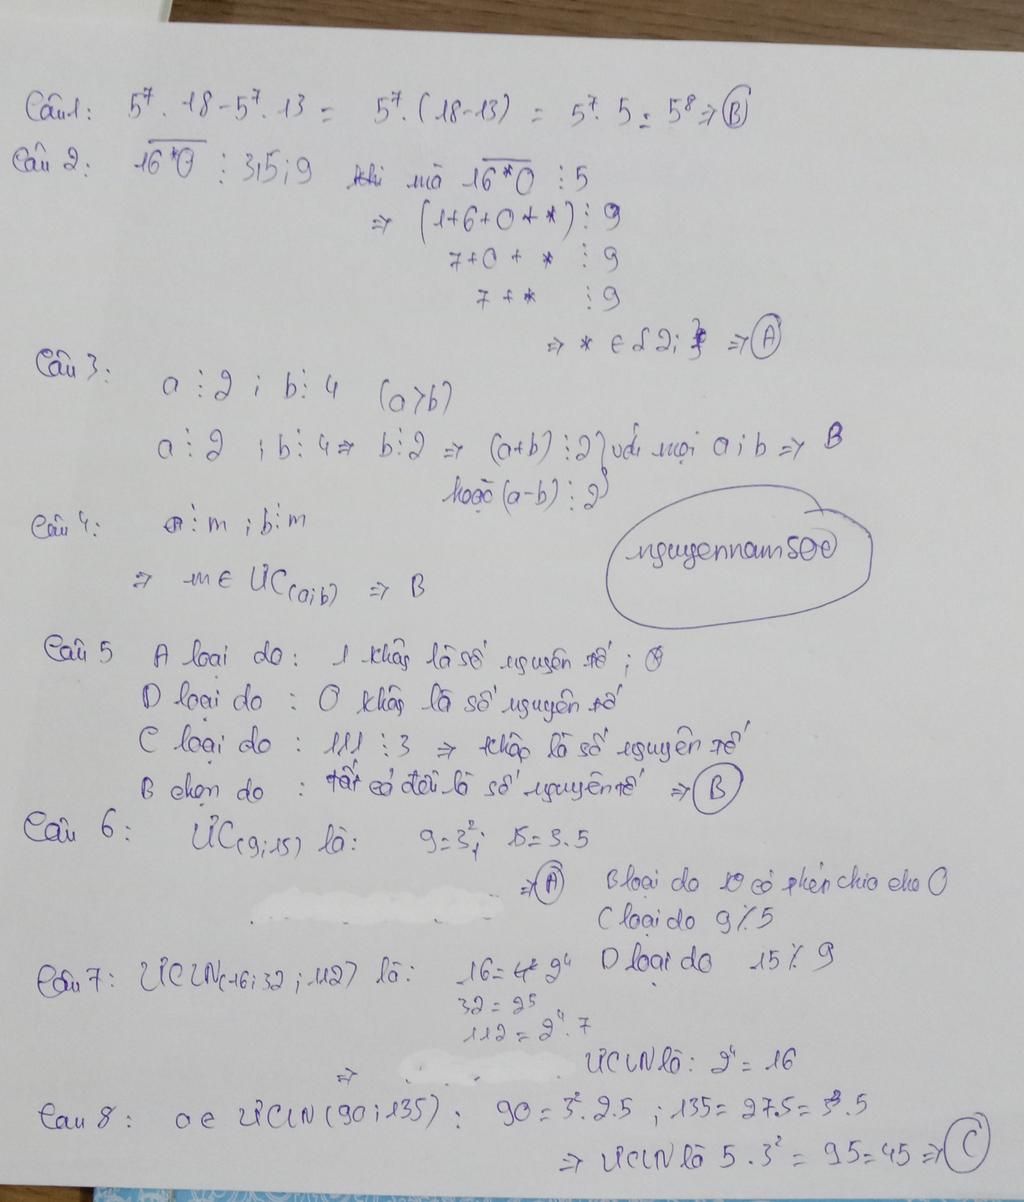 Câu 1: 5⁷ . 18 - 5⁷ . 13 = 5⁷.(18-13) = 5⁷. 5 = 5⁸ => B
Câu 2: 16*0 ⋮ 3;5;9 khi mà 16*0 ⋮ 5
=> (1+6+0+*) ⋮ 9
7+0+* ⋮ 9
7+* ⋮ 9
=> * ∈ {2;} => A
Câu 3:
a ⋮ 2 ; b ⋮ 4 (a>b)
a ⋮ 2 ; b ⋮ 4 => b ⋮ 2 => (a+b) ⋮ 2} với mọi a;b => B
hoặc (a-b) ⋮ 2
Câu 4: a ⋮ m ; b ⋮ m
=> m ∈ ƯC(a;b) => B
nguyennam5
Câu 5 A loại do: 1 không là số nguyên tố;
D loại do : 0 không là số nguyên tố
C loại do : 111 ⋮ 3 => không là số nguyên tố
B chọn do : tất cả đều là số nguyên tố => B
Câu 6: ƯC(9;15) là: 9=3²; 15=3.5
=> A B loại do có phép chia cho 0
C loại do 9 ⋮̸ 5
D loại do 15 ⋮̸ 9
Câu 7: ƯCLN(16;32;112) là: 16= 2⁴
32=2⁵
112=2⁴.7
=> ƯCLN là: 2⁴=16
Câu 8: a ∈ ƯCLN(90;135): 90=3².2.5 ; 135=27.5=3³.5
=> ƯCLN là 5.3²=9.5=45 => C